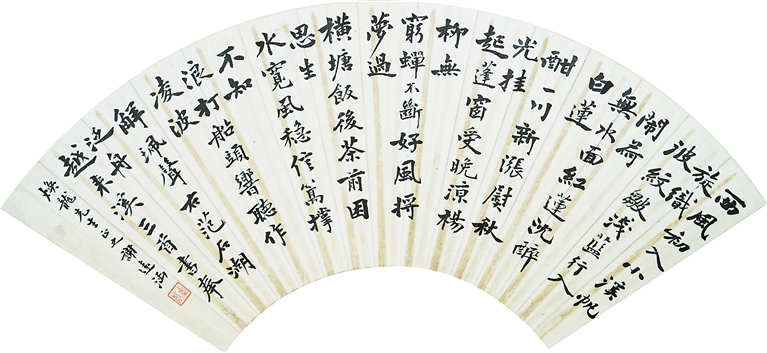 西風初入小溪帆
旋織
波紋縐淺藍行入
鬧荷
無水面紅蓮沈醉
白蓮
酣一川新漲熨秋
光挂
起蓬窗受晚涼楊
柳無
窮蟬不斷好風將
夢過
橫塘飯後茶前困
思生
水寬風穩信篙撐
不知
浪打船頭響聽作
凌波
解珮聲右范石湖
泛舟
越來溪三首書奉
煥龍先生正之謝遠涵